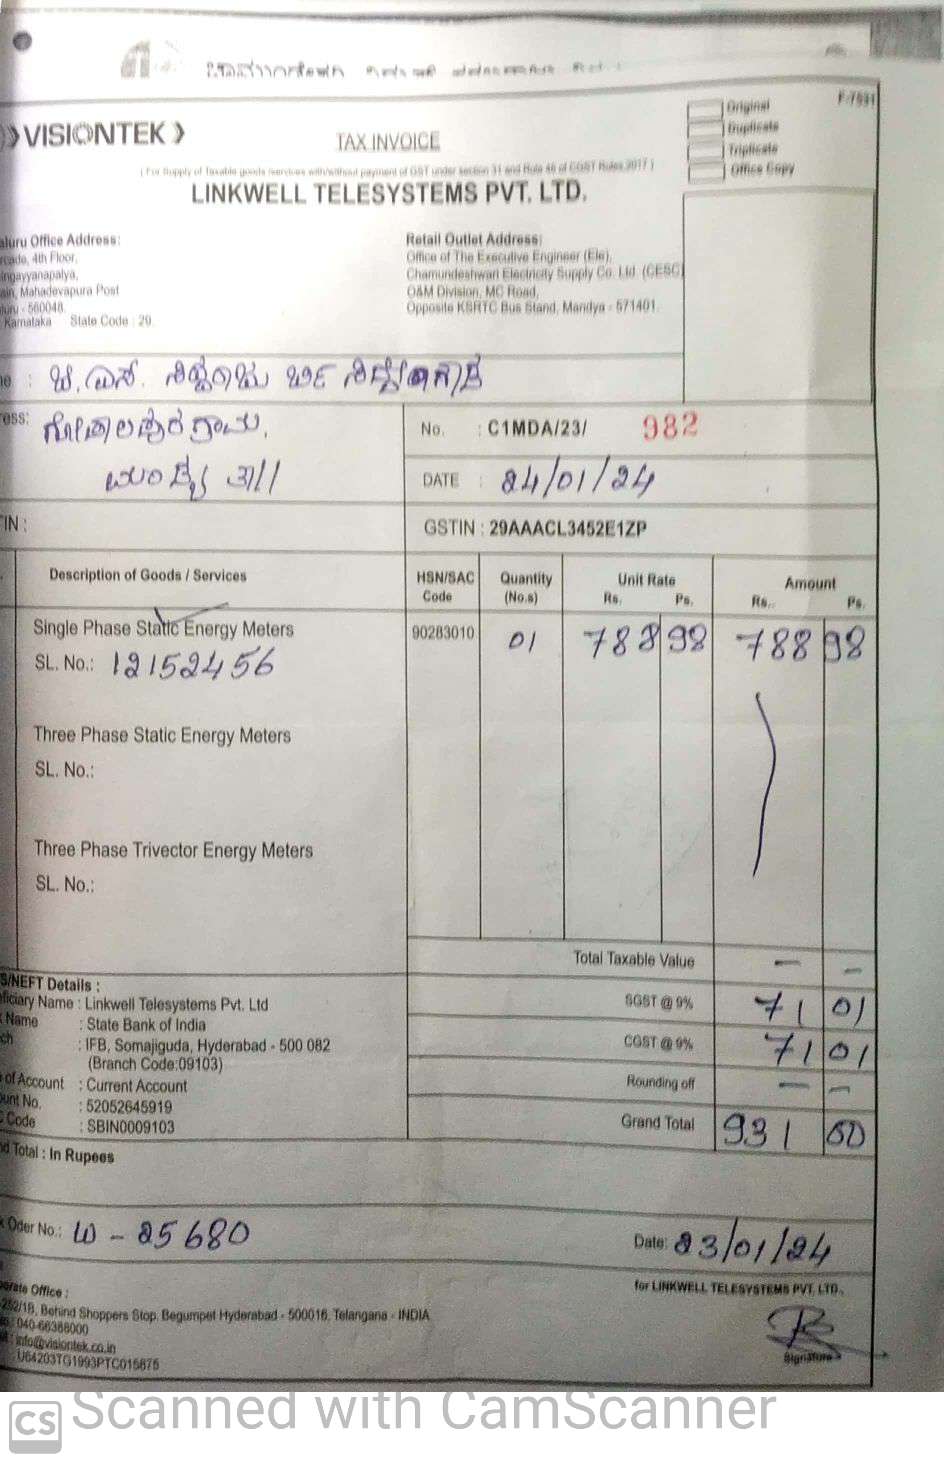 F-7531
Original
Duplicate
Triplicate
Office Copy
VISIONTEK
TAX INVOICE
( For Supply of Taxable goods /services with/without payment of GST under section 31 and Rule 46 of CGST Rules 2017 )
LINKWELL TELESYSTEMS PVT. LTD.
Office Address:
4th Floor,
Mahadevapura Post
560048.
Karnataka State Code : 29
Retail Outlet Address:
Office of The Executive Engineer (Ele),
Chamundeshwari Electricity Supply Co. Ltd. (CESC)
O&M Division, MC Road,
Opposite KSRTC Bus Stand, Mandya - 571401.
ಮಂಡ್ಯ ತಾ//
No. : C1MDA/23/ 982
DATE : 24/01/24
GSTIN : 29AAACL3452E1ZP
Description of Goods / Services HSN/SAC Code Quantity (No.s) Unit Rate Rs. Ps. Amount Rs. Ps.
Single Phase Static Energy Meters 90283010 01 788 98 788 98
SL. No.: 12152456
Three Phase Static Energy Meters
SL. No.:
Three Phase Trivector Energy Meters
SL. No.:
Total Taxable Value — —
SGST @ 9% 71 01
CGST @ 9% 71 01
Rounding off — —
Grand Total 931 00
/NEFT Details :
Name : Linkwell Telesystems Pvt. Ltd
Name : State Bank of India
: IFB, Somajiguda, Hyderabad - 500 082
(Branch Code:09103)
of Account : Current Account
No. : 52052645919
Code : SBIN0009103
Total : In Rupees
Oder No.: W - 25680
Date: 23/01/24
Office :
Behind Shoppers Stop, Begumpet Hyderabad - 500016, Telangana - INDIA
040-66388000
info@visiontek.co.in
U64203TG1993PTC015875
for LINKWELL TELESYSTEMS PVT. LTD.,
Signature
CS Scanned with CamScanner